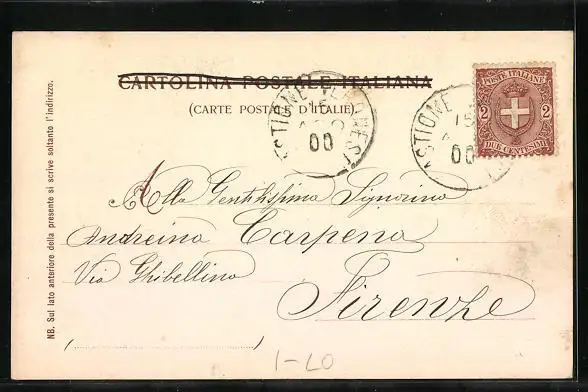 CARTOLINA POSTALE ITALIANA
(CARTE POSTALE D'ITALIE)
POSTE ITALIANE
2 2
DUE CENTESIMI
15
00
15
00
Alla Gentilissima Signorina
Andreina Carpena
Via Ghibellina
Firenze
NB. Sul lato anteriore della presente si scrive soltanto l'indirizzo.
1-LO